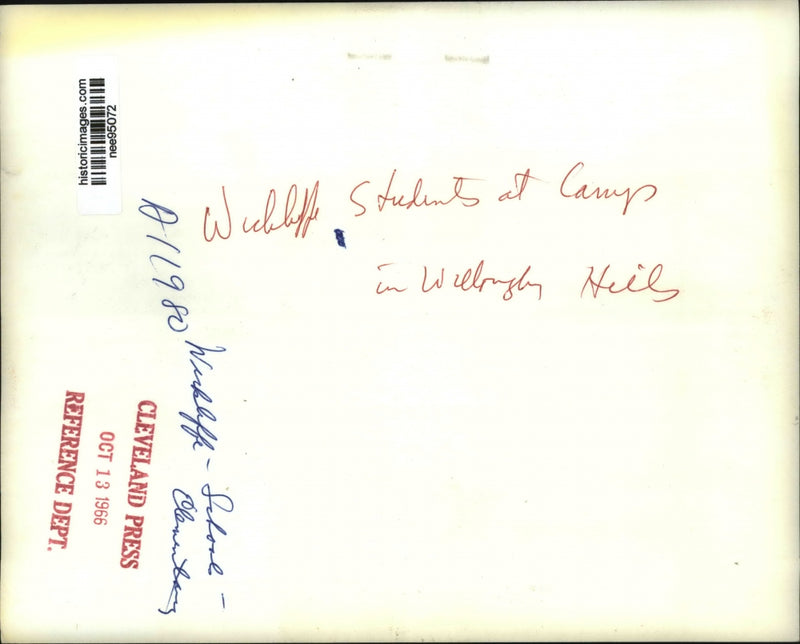 historicimages.com
nee95072
Wickliffe Students at Camp
in Willoughby Hills
A111980 Wickliffe - Schools -
Elementary
CLEVELAND PRESS
OCT 13 1966
REFERENCE DEPT.